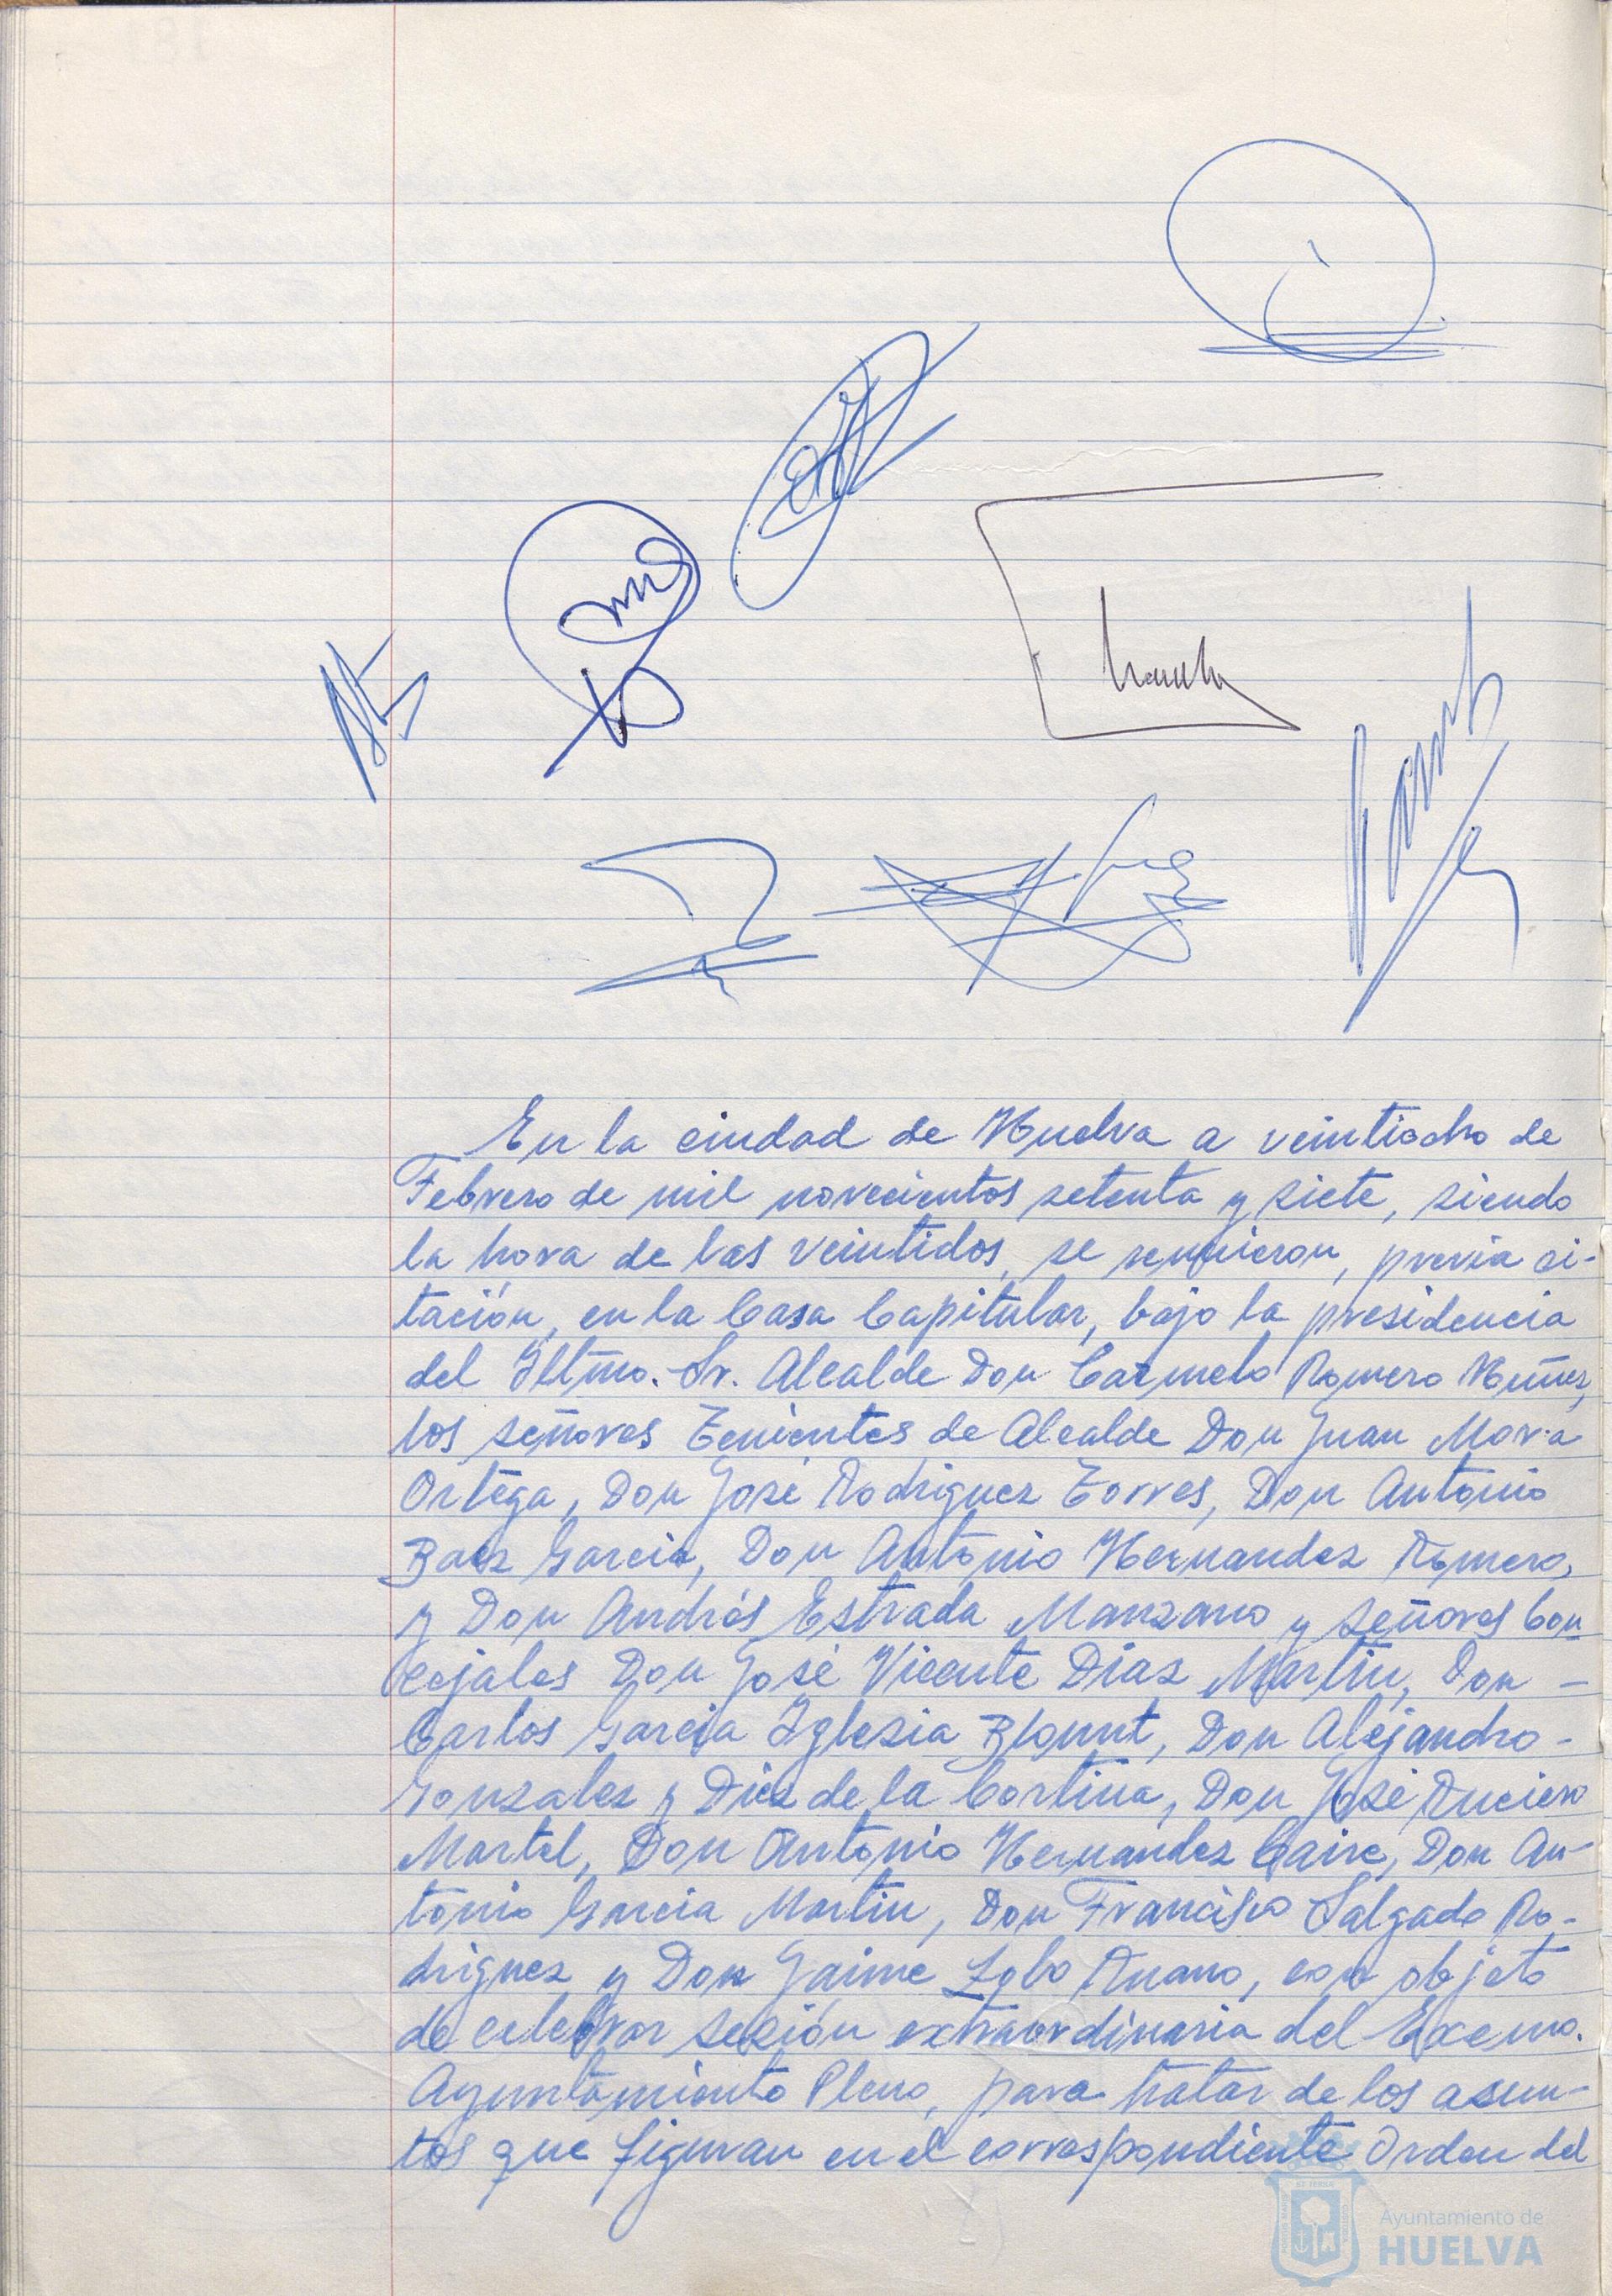 En la ciudad de Huelva a veintiocho de
Febrero de mil novecientos setenta y siete, siendo
la hora de las veintidos, se reunieron, previa ci-
tación, en la Casa Capitular, bajo la presidencia
del Iltmo. Sr. Alcalde Don Carmelo Romero Nuñez,
los señores Tenientes de Alcalde Don Juan Mora
Ortega, Don José Rodriguez Torres, Don Antonio
Baez Garcia, Don Antonio Hernandez Romero,
y Don Andrés Estrada Manzano y señores Con
cejales Don José Vicente Díaz Martin, Don -
Carlos Garcia Iglesia Blount, Don Alejandro -
Gonzalez y Diez de la Cortina, Don José Ruciero
Martel, Don Antonio Hernandez Caire, Don An-
tonio Garcia Martin, Don Francisco Salgado Ro-
driguez y Don Jaime Lobo Ruano, con objeto
de celebrar sesión extraordinaria del Excmo.
Ayuntamiento Pleno, para tratar de los asun-
tos que figuran en el correspondiente Orden del
Ayuntamiento de
HUELVA